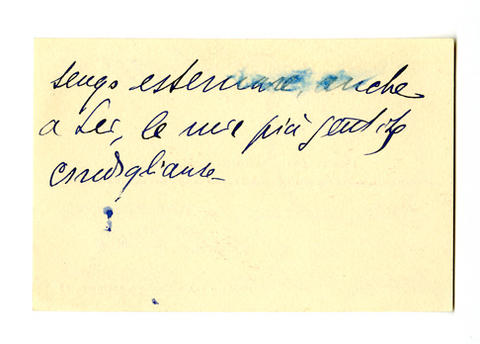 tengo esternare, anche
a Lei, le mie più sentite
condoglianze